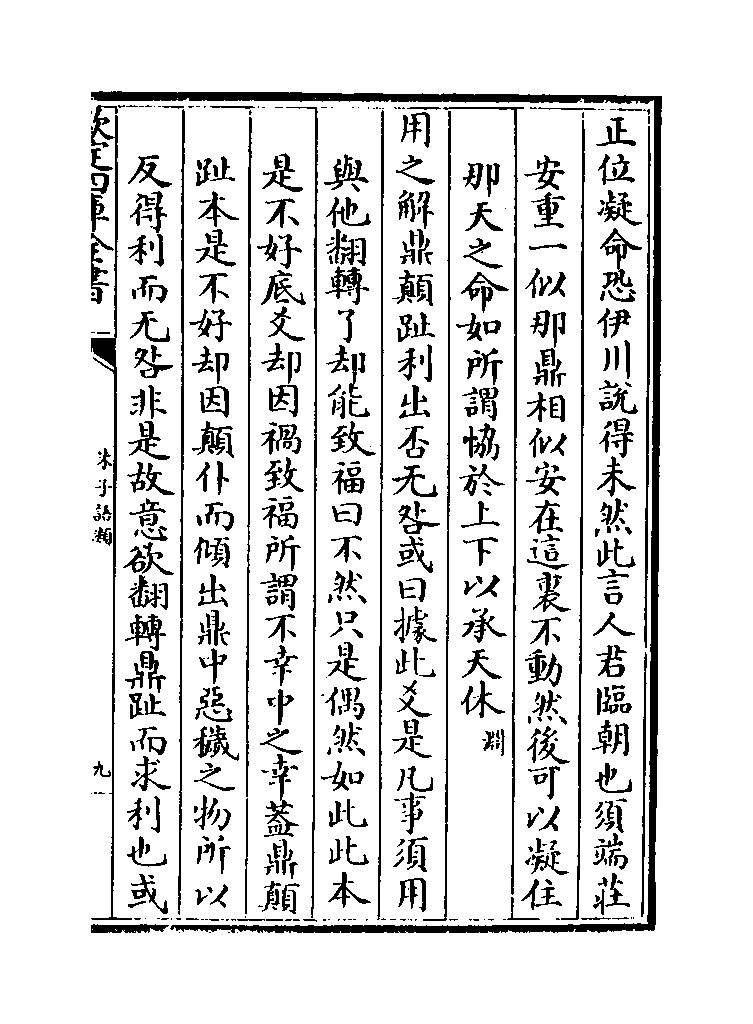 正位凝命恐伊川說得未然此言人君臨朝也須端莊
安重一似那鼎相似安在這裏不動然後可以凝住
那天之命如所謂恊於上下以承天休淵
用之解鼎顛趾利出否无咎或曰據此爻是凡事須用
與他翻轉了却能致福曰不然只是偶然如此此本
是不好底爻却因禍致福所謂不幸中之幸葢鼎顛
趾本是不好却因顛仆而傾出鼎中惡穢之物所以
反得利而无咎非是故意欲翻轉鼎趾而求利也或
欽定四庫全書
朱子語類
九